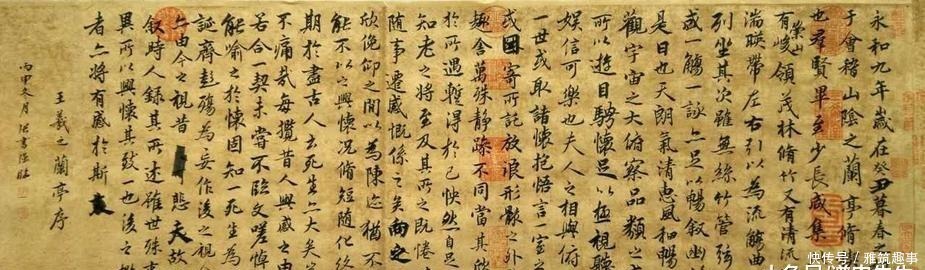 永和九年歲在癸丑暮春之
于會稽山陰之蘭亭脩
也羣賢畢至少長咸集
有崇山峻領茂林脩竹又有清流
湍暎帶左右引以為流觴曲
列坐其次雖無絲竹管弦
盛一觴一詠亦足以暢叙幽
是日也天朗氣清惠風和暢
觀宇宙之大俯察品類之
所以遊目騁懷足以極視聽
娛信可樂也夫人之相與俯
一世或取諸懷抱悟言一室之
或因寄所託放浪形骸之外
趣舍萬殊静躁不同當其欣
於所遇暫得於己怏然自足
知老之將至及其所之既惓
隨事遷感慨係之矣向之
欣俛仰之間以為陳迹猶不
能不以之興懷況脩短隨化終
期於盡古人云死生亦大矣
不痛哉每攬昔人興感之由
若合一契未嘗不臨文嗟悼
能喻之於懷固知一死生為
誕齊彭殤為妄作後之視
亦由今之視昔悲夫故
叙時人錄其所述雖世殊事
異所以興懷其致一也後之
者亦將有感於斯文
王羲之蘭亭序
丙申冬月
快传号/雅筑趣事